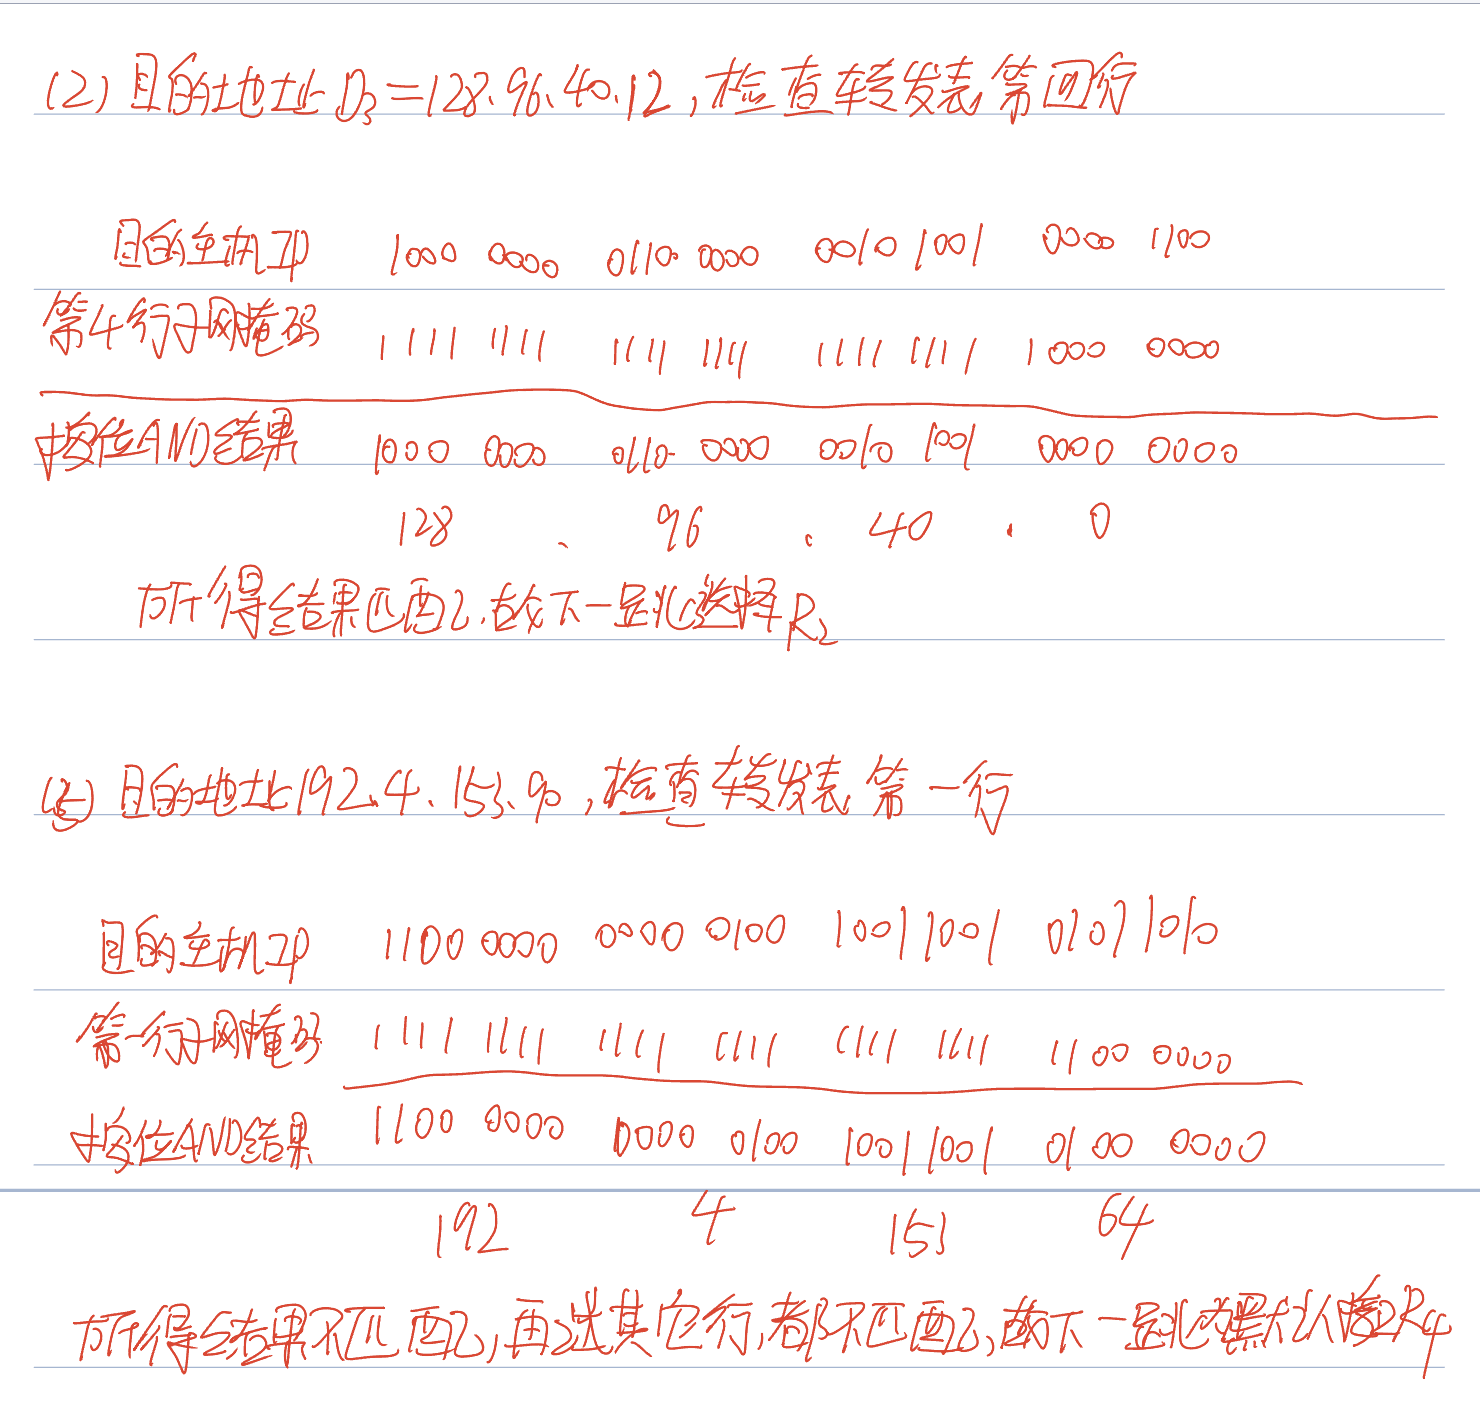 (2) 目的地址 D₃=128.96.40.12,检查转发表第四行
目的主机IP 1000 0000 0110 0000 0010 1001 0000 1100
第4行子网掩码 1111 1111 1111 1111 1111 1111 1000 0000
按位AND结果 1000 0000 0110 0000 0010 1001 0000 0000
128 . 96 . 40 . 0
所得结果匹配,故下一跳选择R₂
目的地址192.4.153.90,检查转发表第一行
目的主机IP 1100 0000 0000 0100 1001 1001 0101 1010
第一行子网掩码 1111 1111 1111 1111 1111 1111 1100 0000
按位AND结果 1100 0000 0000 0100 1001 1001 0100 0000
192 4 153 64
所得结果不匹配,再试其它行,都不匹配,故下一跳默认R4